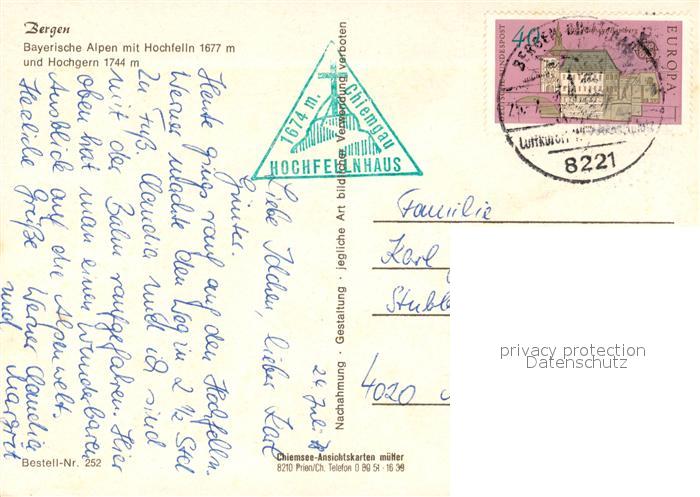 Bergen
Bayerische Alpen mit Hochfelln 1677 m
und Hochgern 1744 m
24. Juli 78
Liebe Idchen, lieber Karl
Günter.
Heute gings rauf auf den Hochfelln.
Werner machte den Weg in 2 ½ Std
zu Fuß. Claudia und ich sind
mit der Bahn raufgefahren. Hier
oben hat man einen wunderbaren
Ausblick auf die Alpenwelt.
Herzliche Grüße Werner Claudia
und Margret
Bestell-Nr. 252
1674 m. Chiemgau
HOCHFELLNHAUS
Nachahmung · Gestaltung · jegliche Art bildlicher Verwendung verboten
Chiemsee-Ansichtskarten müller
8210 Prien/Ch. Telefon 0 80 51 - 16 39
BUNDESPOST
40
EUROPA
BERGEN
Luftkurort
8221
Familie
Karl
Stubb
4020
privacy protection
Datenschutz